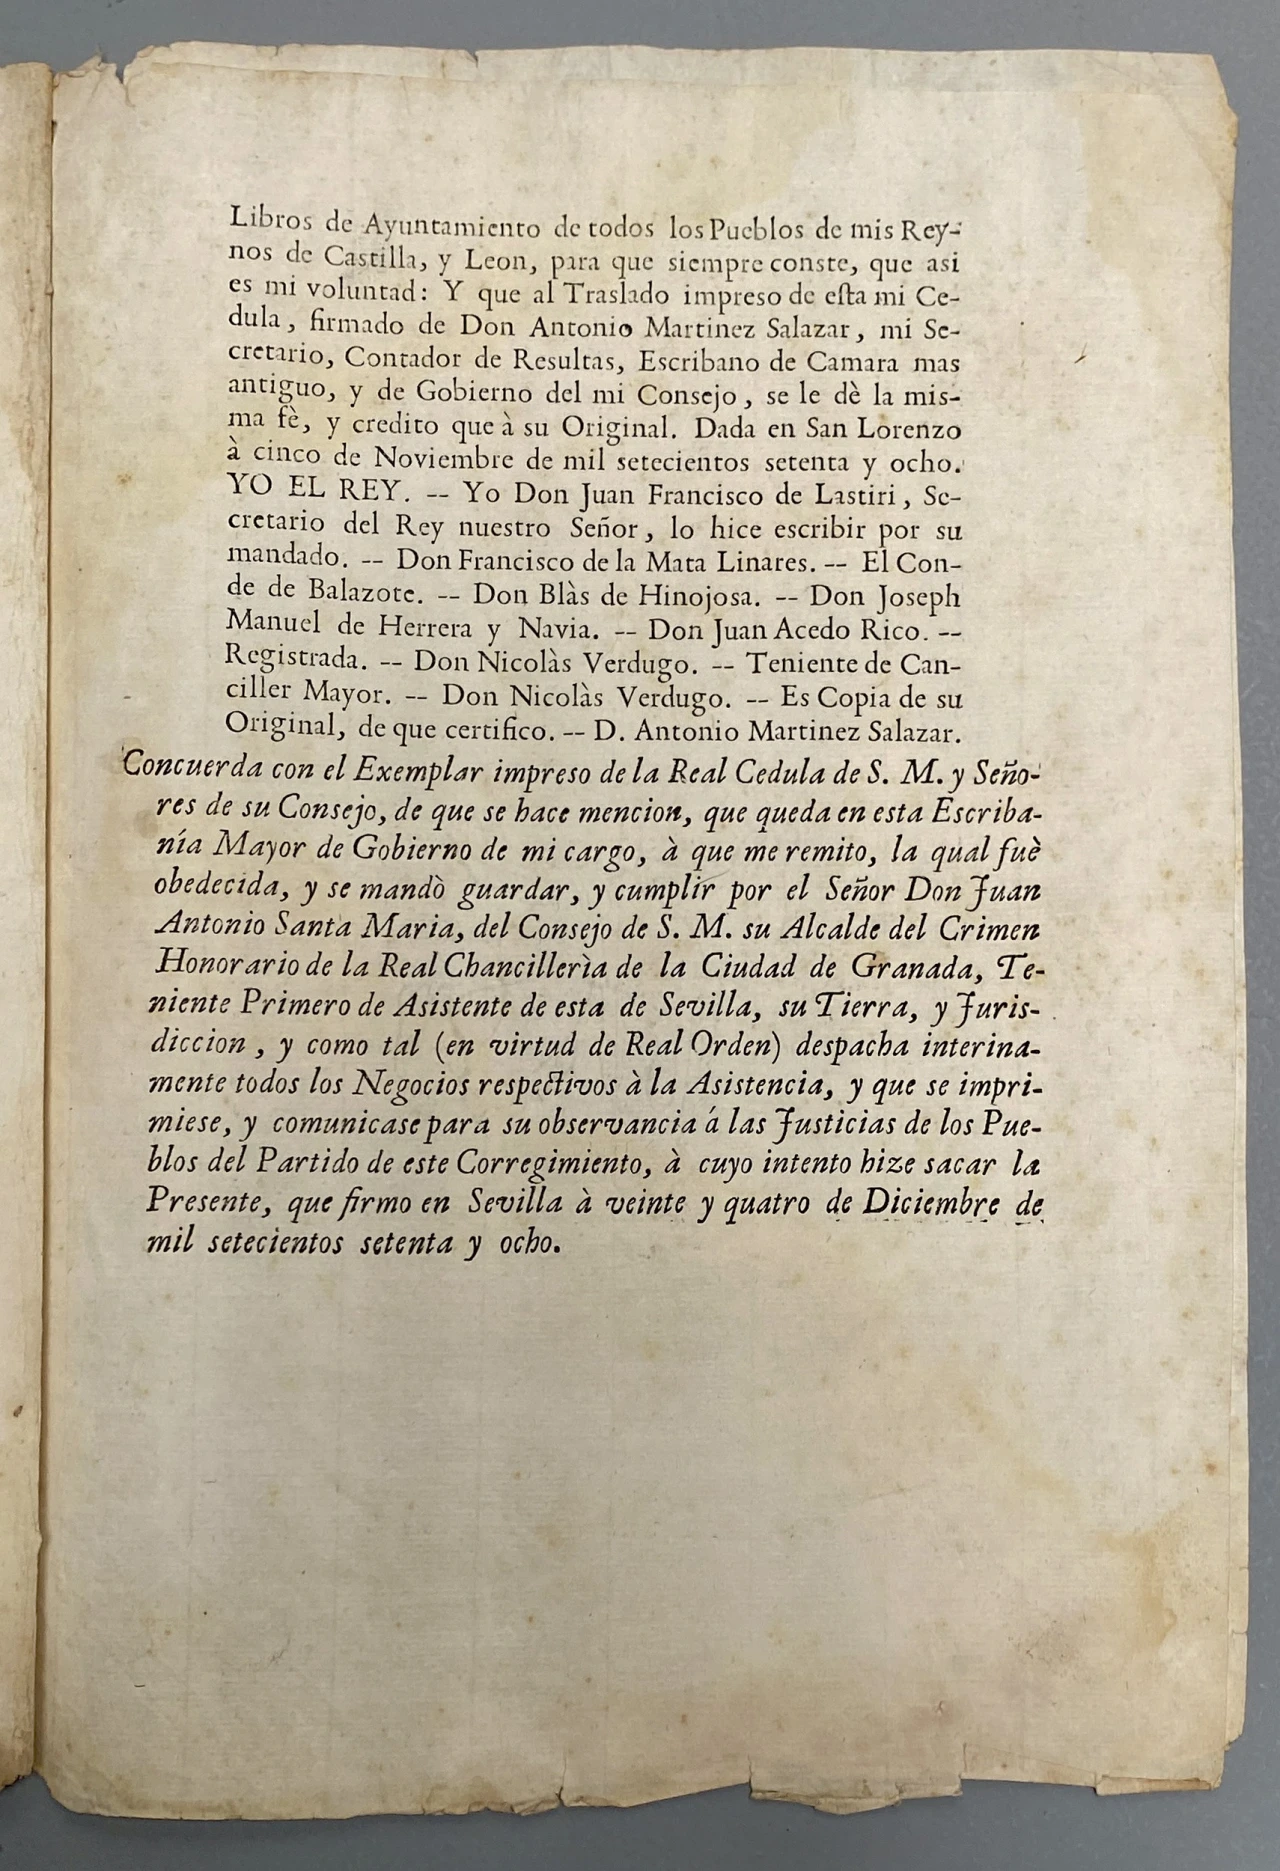 Libros de Ayuntamiento de todos los Pueblos de mis Rey-
nos de Castilla, y Leon, para que siempre conste, que asi
es mi voluntad: Y que al Traslado impreso de esta mi Ce-
dula, firmado de Don Antonio Martinez Salazar, mi Se-
cretario, Contador de Resultas, Escribano de Camara mas
antiguo, y de Gobierno del mi Consejo, se le dè la mis-
ma fè, y credito que à su Original. Dada en San Lorenzo
à cinco de Noviembre de mil setecientos setenta y ocho.
YO EL REY. -- Yo Don Juan Francisco de Lastiri, Se-
cretario del Rey nuestro Señor, lo hice escribir por su
mandado. -- Don Francisco de la Mata Linares. -- El Con-
de de Balazote. -- Don Blàs de Hinojosa. -- Don Joseph
Manuel de Herrera y Navia. -- Don Juan Acedo Rico. --
Registrada. -- Don Nicolàs Verdugo. -- Teniente de Can-
ciller Mayor. -- Don Nicolàs Verdugo. -- Es Copia de su
Original, de que certifico. -- D. Antonio Martinez Salazar.
Concuerda con el Exemplar impreso de la Real Cedula de S. M. y Seño-
res de su Consejo, de que se hace mencion, que queda en esta Escriba-
nía Mayor de Gobierno de mi cargo, à que me remito, la qual fuè
obedecida, y se mandò guardar, y cumplir por el Señor Don Juan
Antonio Santa Maria, del Consejo de S. M. su Alcalde del Crimen
Honorario de la Real Chancillerìa de la Ciudad de Granada, Te-
niente Primero de Asistente de esta de Sevilla, su Tierra, y Juris-
diccion, y como tal (en virtud de Real Orden) despacha interina-
mente todos los Negocios respectivos à la Asistencia, y que se impri-
miese, y comunicase para su observancia á las Justicias de los Pue-
blos del Partido de este Corregimiento, à cuyo intento hize sacar la
Presente, que firmo en Sevilla à veinte y quatro de Diciembre de
mil setecientos setenta y ocho.